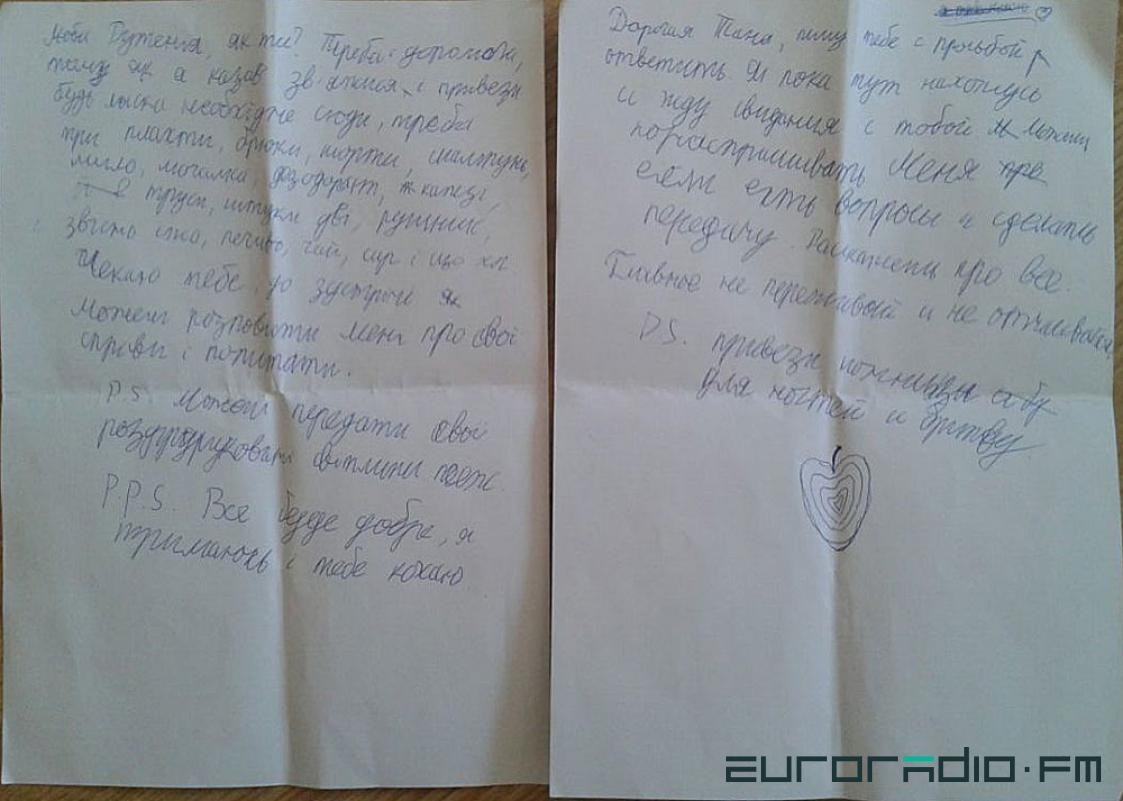 Люба Рутенія, як ти? Треба допомога,
тому як я казав зв'яжися і привези
будь ласка необхідне сюди, треба
три плахти, брюки, шорти, шампунь,
мило, мочалка, дезодорант, капезі,
труси, штуки дві, рушник,
звісно їжа, печиво, чай, сир і що хл
Чекаю тебе, до зустрічі як
Можеш розповісти мені про свої
справи і попитати.
P.S. Можеш передати свої
роздруковані світлини теж.
P.P.S. Все буде добре, я
тримаюсь і тебе кохаю
Дорогая Тана, пишу тебе с просьбой
ответить. Я пока тут нахожусь
и жду свидания с тобой Можешь
пораспрашивать меня
если есть вопросы и сделать
передачу. Расскажешь про все.
Главное не переживай и не отчаивайся
P.S. привези ножницы
для ногтей и бритву
euroradio.fm